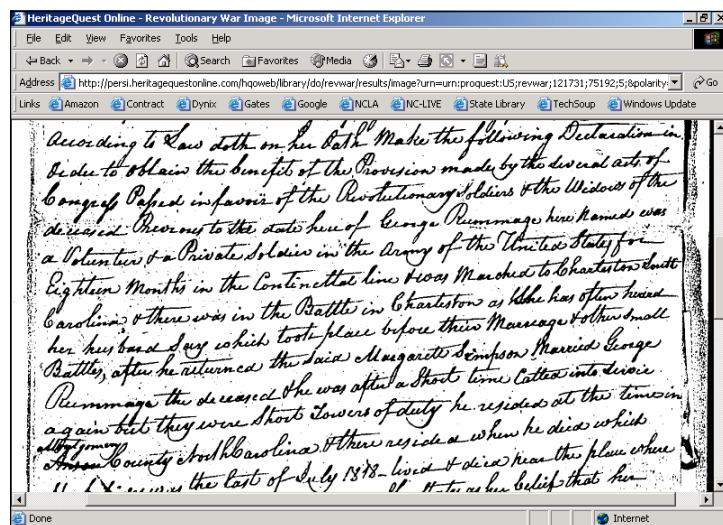 HeritageQuest Online - Revolutionary War Image - Microsoft Internet Explorer
File Edit View Favorites Tools Help
Back Search Favorites Media
Address http://persi.heritagequestonline.com/hqoweb/library/do/revwar/results/image?urn=urn:proquest:US;revwar;121731;75192;5;&polarity= Go
Links Amazon Contract Dynix Gates Google NCLA NC-LIVE State Library TechSoup Windows Update
according to Law doth on her Oath Make the following Declaration in
Order to obtain the benefit of the Provision made by the several acts of
Congress Passed in favour of the Revolutionary Soldiers & the Widows of the
deceased Previous to the date here of George Rummage here Named was
a Volunteer & a Private Soldier in the Army of the United States for
Eighteen Months in the Continettal line & was Marched to Charleston South
Carolina & there was in the Battle in Charleston as she has often heard
her husband Say which took place before their Marriage & other Small
Battles, after he returned the Said Margarett Simpson Married George
Rummage the deceased & he was after a Short time Called into Service
again but they were Short Towers of duty he resided at the time in
Montgomery
Anson County North Carolina & there resided when he died which
was the last of July 1818 - lived & died near the place where
states as her belief that her
Done Internet